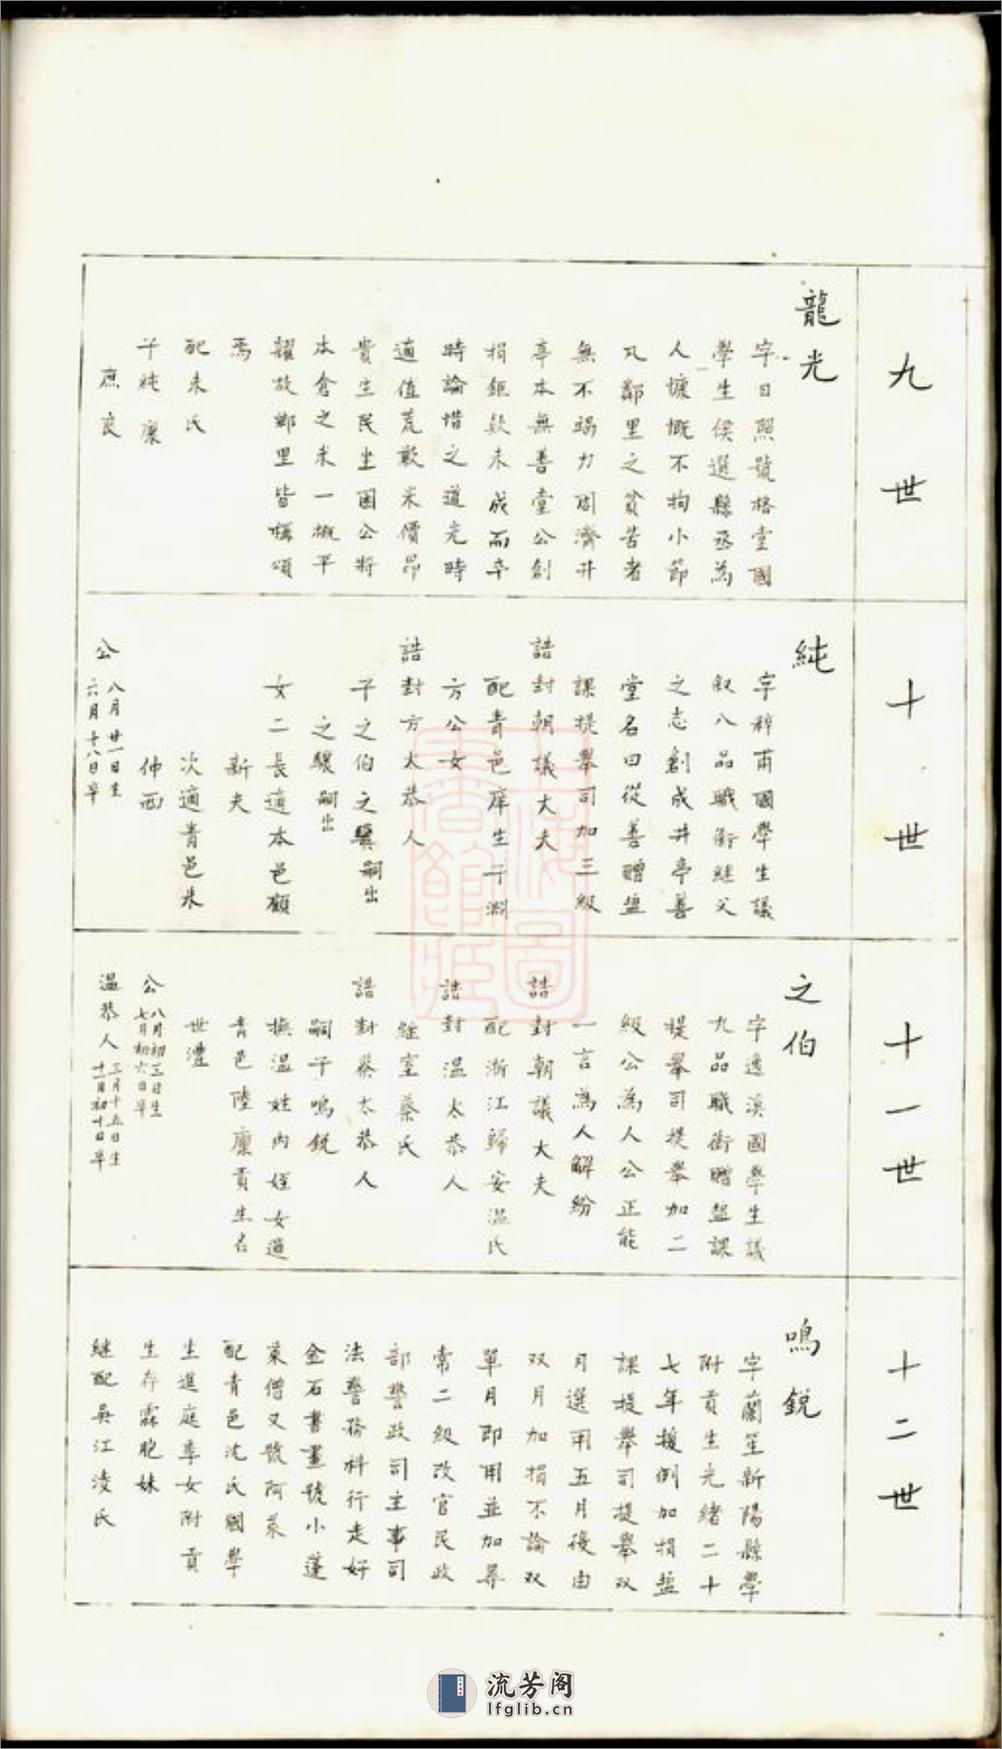 九世
龍光
字日照號格堂國
學生候選縣丞為
人慷慨不拘小節
凡鄰里之貧苦者
無不竭力周濟井
亭本無善堂公創
捐鉅款未成而卒
時論惜之道光時
適值荒歉米價昂
貴生民坐困公將
本倉之米一概平
糶故鄉里皆稱頌
焉
配朱氏
子純 廩
庶良
十世
純
字粹甫國學生議
叙八品職銜繼父
之志創成井亭善
堂名曰從善贈鹽
課提舉司加三級
誥封朝議大夫
配青邑庠生于淵
方公女
誥封方太恭人
子之伯之驥嗣出
之驤嗣出
女二長適本邑顧
新夫
次適青邑朱
仲西
公 八月廿一日生
六月十八日卒
十一世
之伯
字逸溪國學生議
九品職銜贈鹽課
提舉司提舉加二
級公為人公正能
一言為人解紛
誥封朝議大夫
配浙江歸安溫氏
誥封溫太恭人
繼室蔡氏
誥封蔡太恭人
嗣子鳴鋭
撫溫姓內姪女適
青邑陸廩貢生名
世澧
公 八月初三日生
七月初六日卒
溫恭人 三月十五日生
十一月初十日卒
十二世
鳴鋭
字蘭笙新陽縣學
附貢生光緒二十
七年援例加捐鹽
課提舉司提舉双
月選用五月後由
双月加捐不論双
單月即用並加尋
常二級改官民政
部警政司主事司
法警務科行走好
金石書畫號小蓬
萊僧又號阿萊
配青邑沈氏國學
生進庭章女附貢
生存霖胞妹
繼配吳江淩氏
上海圖書館藏
流芳阁
lfglib.cn